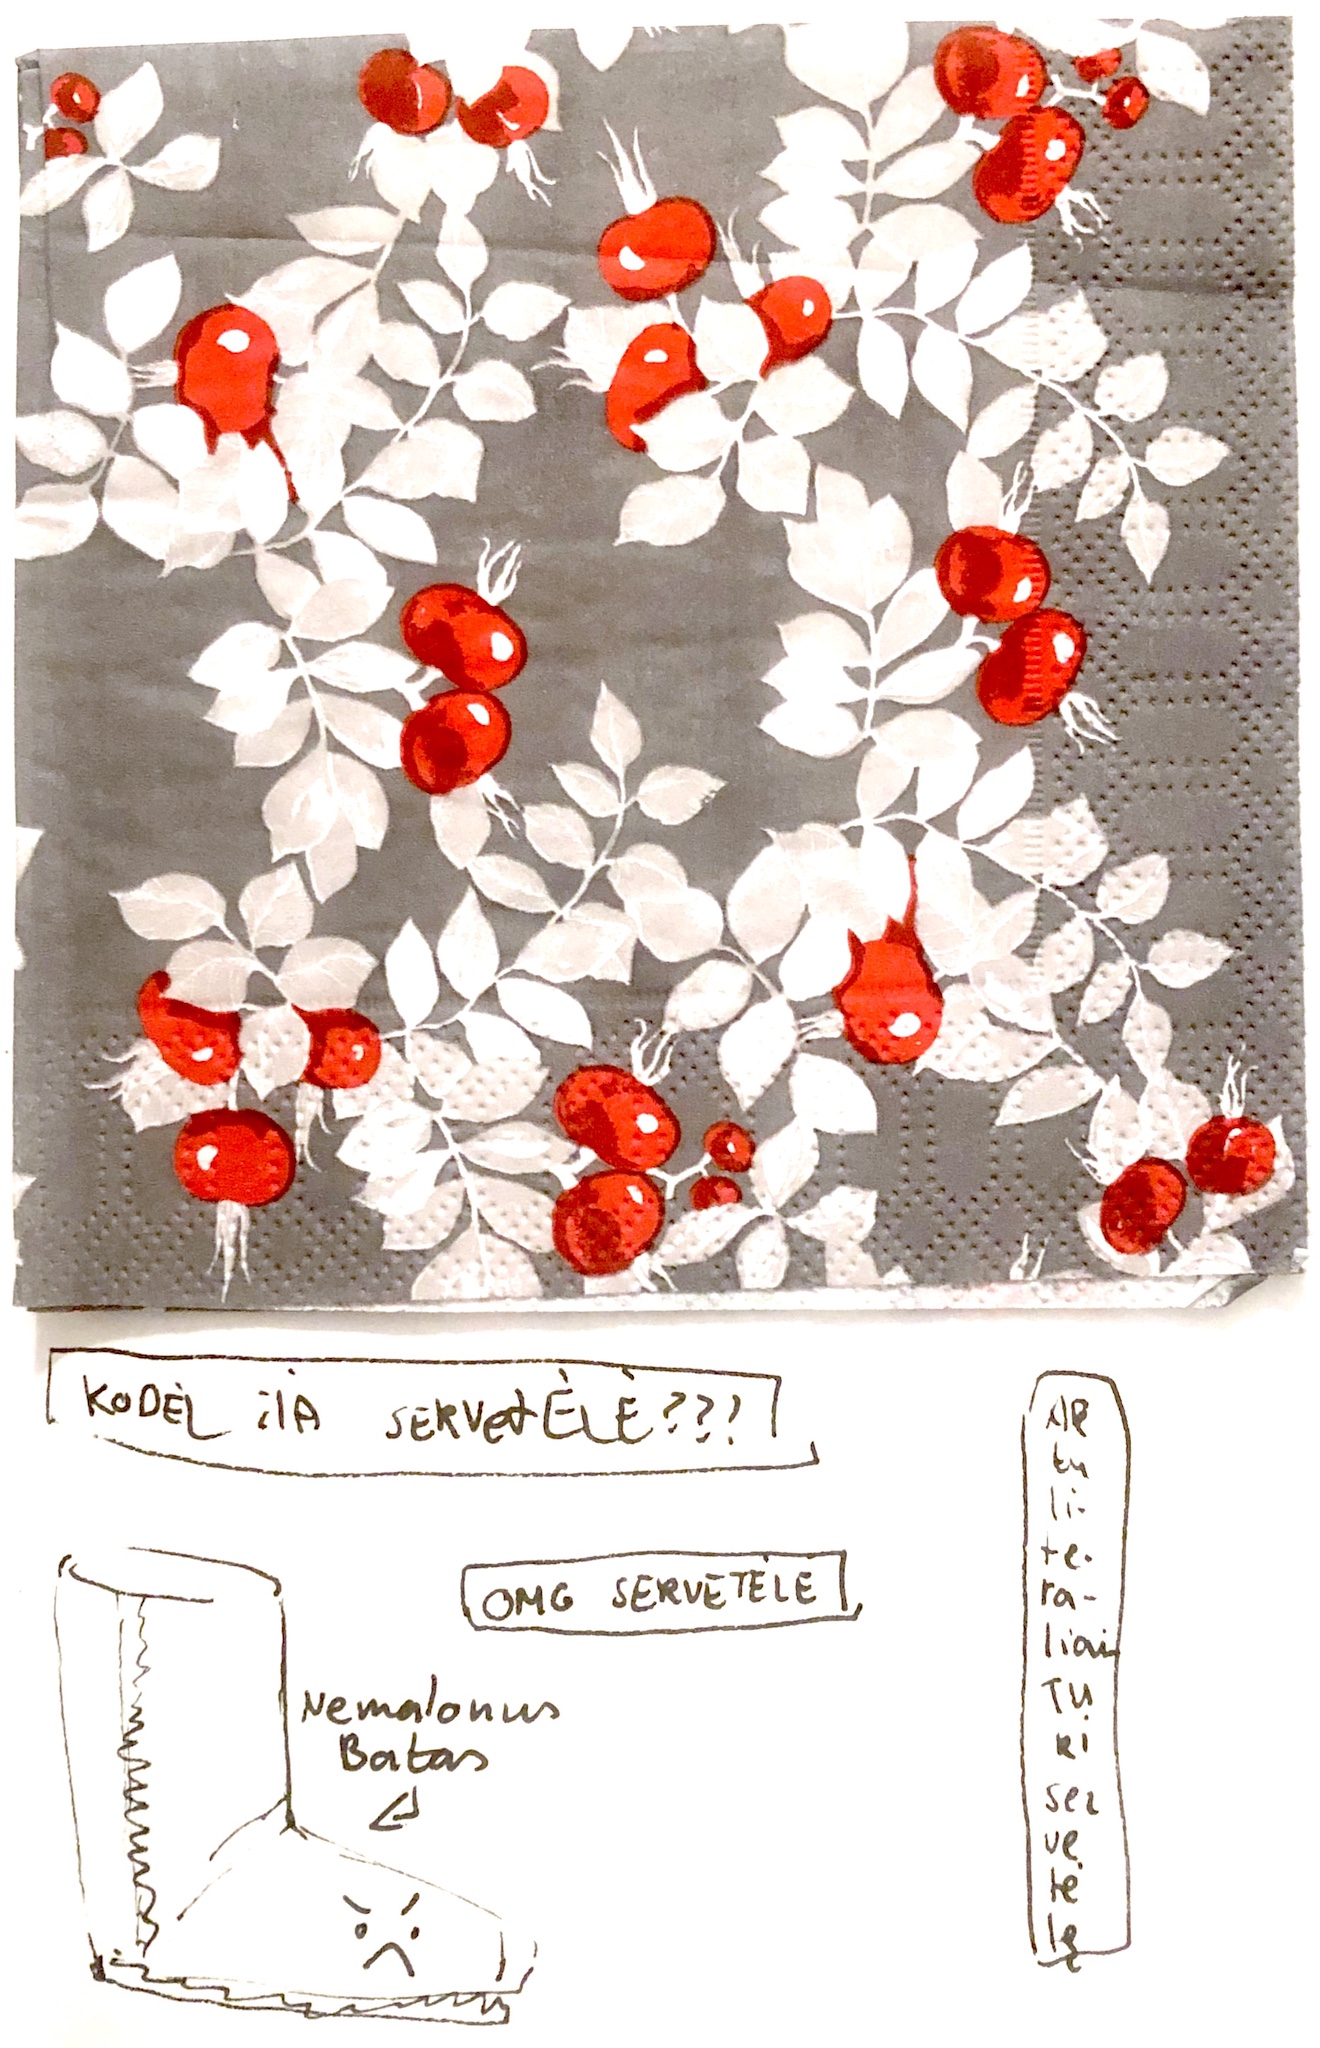 KODĖL čIA SERVETĖLĖ???
OMG SERVETĖLĖ
Nemalonus
Batas
AR
tu
li-
te-
ra-
liai
TU
ri
ser
ve
tė
lę